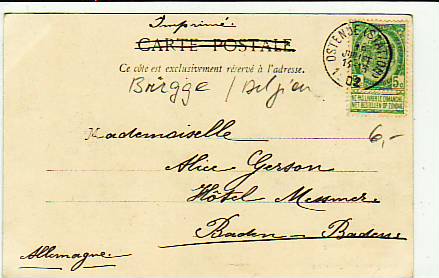 Imprimé.
CARTE POSTALE
Ce côté est exclusivement réservé à l'adresse.
Brügge / Belgien
OSTENDE (STATION)
02
5c
NE PAS LIVRER LE DIMANCHE
NIET BESTELLEN OP ZONDAG
6,-
Mademoiselle
Alice Gerson
Hôtel Messmer
Baden-Baden
Allemagne.